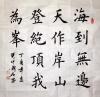 海到無邊
天作岸山
登絕頂我
為峯